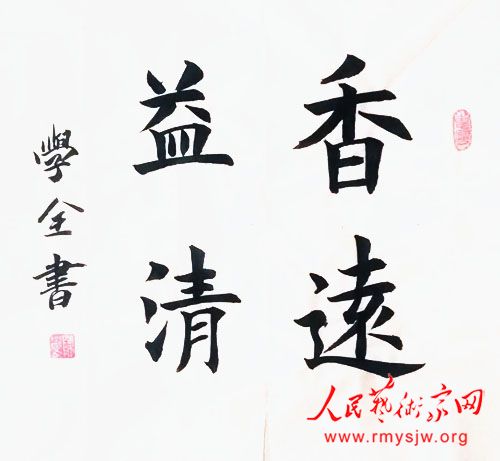 香遠
益清
學全書
人民藝術家网
www.rmysjw.org